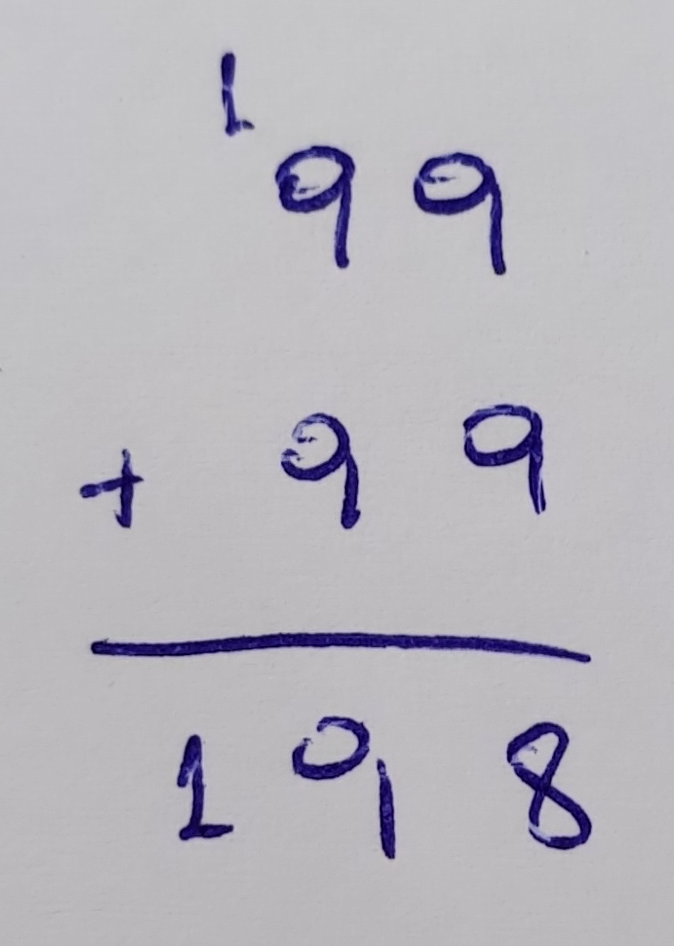 1
99
+ 99
198